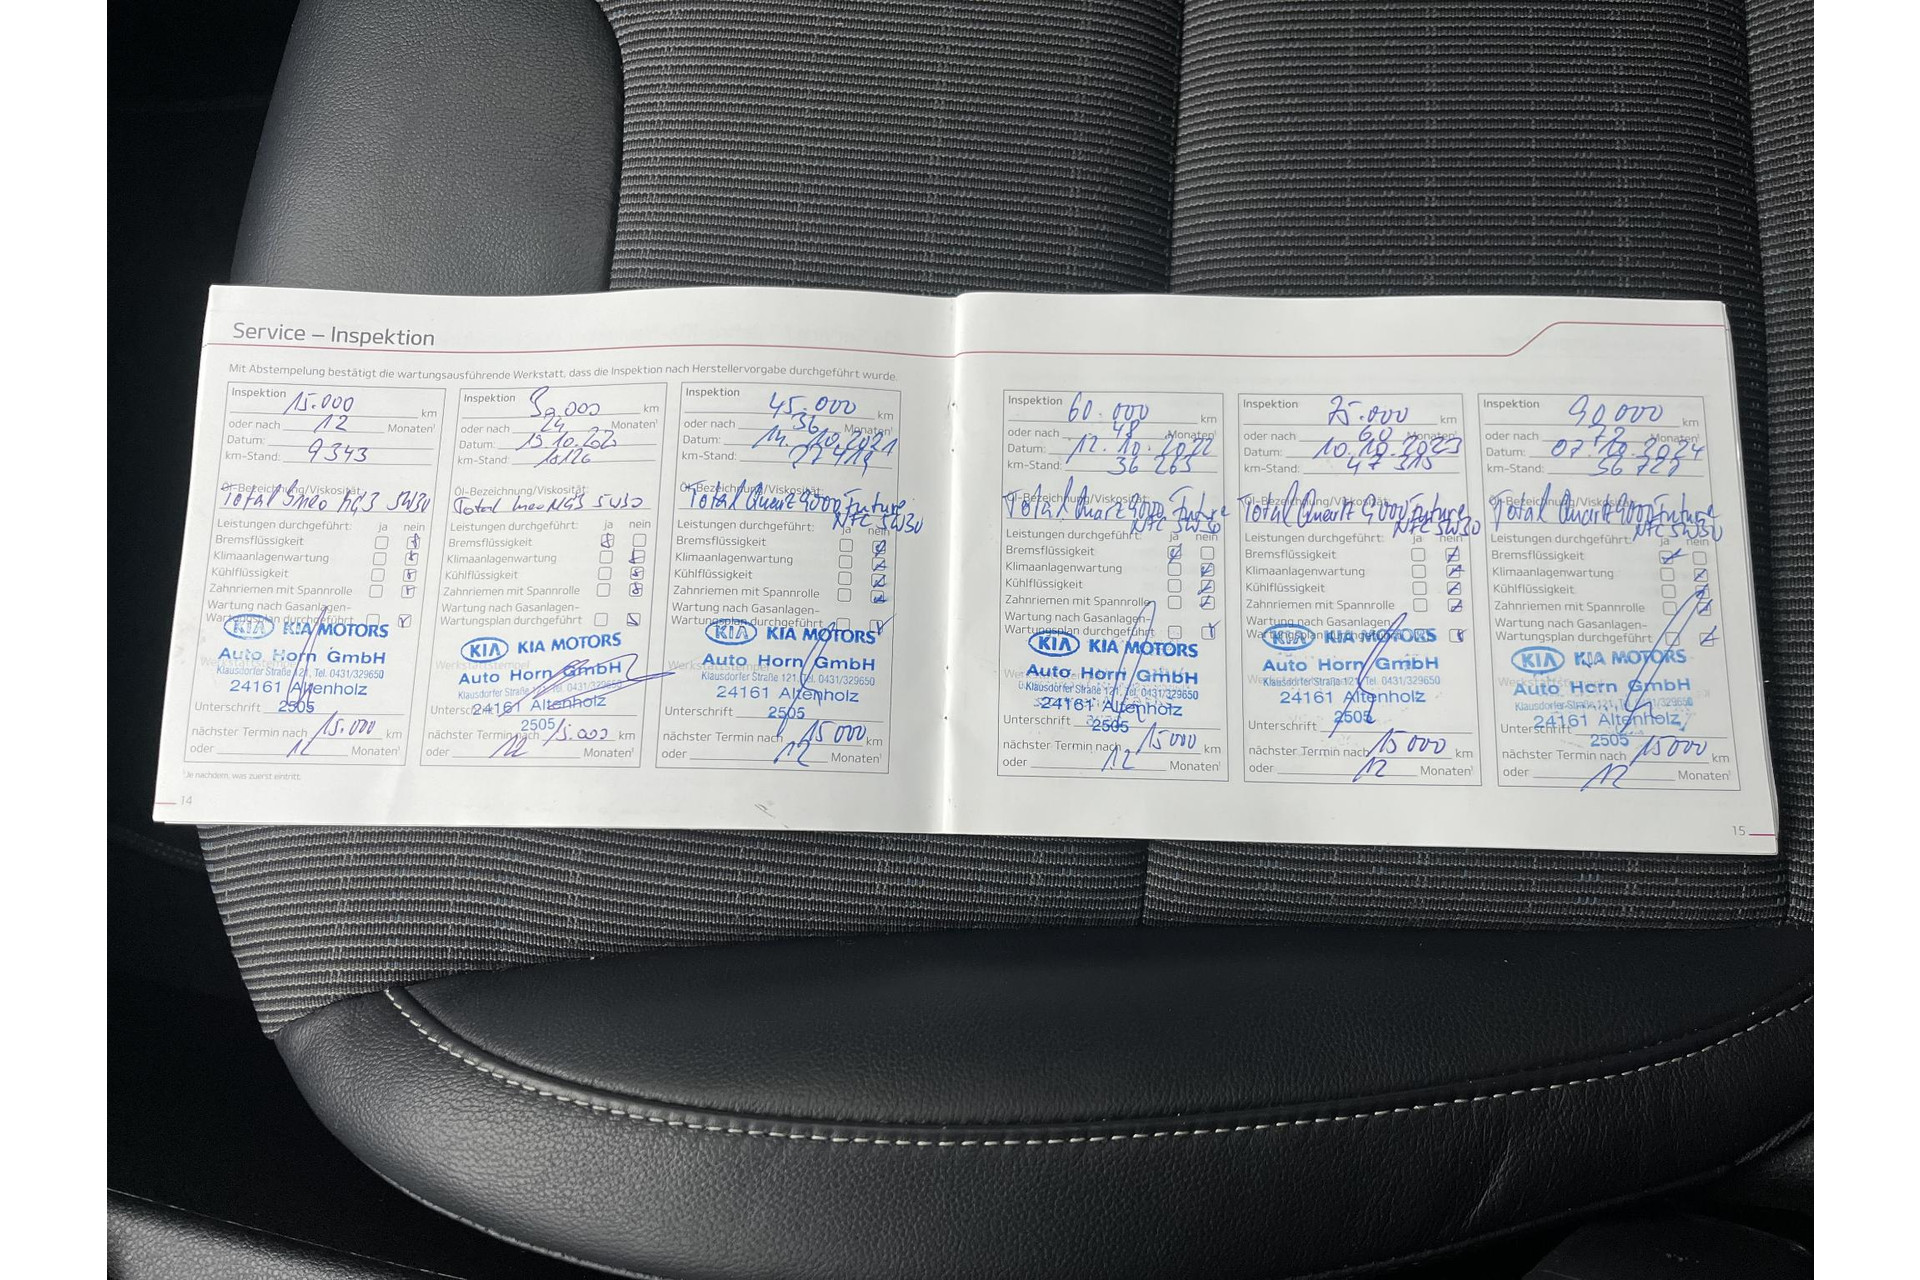 Service – Inspektion
Mit Abstempelung bestätigt die wartungsausführende Werkstatt, dass die Inspektion nach Herstellervorgabe durchgeführt wurde.
Inspektion 15.000 km
oder nach 12 Monaten¹
Datum:
km-Stand: 9343
Öl-Bezeichnung/Viskosität:
Total 5W30
Leistungen durchgeführt: ja nein
Bremsflüssigkeit
Klimaanlagenwartung
Kühlflüssigkeit
Zahnriemen mit Spannrolle
Wartung nach Gasanlagen-
Wartungsplan durchgeführt
KIA KIA MOTORS
Auto Horn GmbH
Klausdorfer Straße 121, Tel. 0431/329650
24161 Altenholz
2505
Unterschrift
nächster Termin nach 15.000 km
oder 12 Monaten¹
¹Je nachdem, was zuerst eintritt.
14
Inspektion 30.000 km
oder nach 24 Monaten¹
Datum:
km-Stand: 18126
Öl-Bezeichnung/Viskosität:
Total 5W30
Leistungen durchgeführt: ja nein
Bremsflüssigkeit
Klimaanlagenwartung
Kühlflüssigkeit
Zahnriemen mit Spannrolle
Wartung nach Gasanlagen-
Wartungsplan durchgeführt
Werkstattstempel
KIA KIA MOTORS
Auto Horn GmbH
Klausdorfer Straße 121, Tel. 0431/329650
24161 Altenholz
2505
nächster Termin nach 15.000 km
oder 12 Monaten¹
Inspektion 45.000 km
oder nach 36 Monaten¹
Datum: 14.10.2021
km-Stand: 27419
Öl-Bezeichnung/Viskosität:
Total Quartz 9000 Future
NFC 5W30
Leistungen durchgeführt: ja nein
Bremsflüssigkeit
Klimaanlagenwartung
Kühlflüssigkeit
Zahnriemen mit Spannrolle
Wartung nach Gasanlagen-
Wartungsplan durchgeführt
Werkstattstempel
KIA KIA MOTORS
Auto Horn GmbH
Klausdorfer Straße 121, Tel. 0431/329650
24161 Altenholz
2505
Unterschrift
nächster Termin nach 15000 km
oder 12 Monaten¹
Inspektion 60.000 km
oder nach 48 Monaten¹
Datum: 12.10.2022
km-Stand: 36263
Öl-Bezeichnung/Viskosität:
Total Quartz 9000 Future
NFC 5W30
Leistungen durchgeführt: ja nein
Bremsflüssigkeit
Klimaanlagenwartung
Kühlflüssigkeit
Zahnriemen mit Spannrolle
Wartung nach Gasanlagen-
Wartungsplan durchgeführt
KIA KIA MOTORS
Auto Horn GmbH
Klausdorfer Straße 121, Tel. 0431/329650
24161 Altenholz
2505
Unterschrift
nächster Termin nach 15000 km
oder 12 Monaten¹
Inspektion 75.000 km
oder nach 60 Monaten¹
Datum: 10.10.2023
km-Stand: 47315
Öl-Bezeichnung/Viskosität:
Total Quartz 9000 Future
NFC 5W30
Leistungen durchgeführt: ja nein
Bremsflüssigkeit
Klimaanlagenwartung
Kühlflüssigkeit
Zahnriemen mit Spannrolle
Wartung nach Gasanlagen-
Wartungsplan durchgeführt
KIA KIA MOTORS
Auto Horn GmbH
Klausdorfer Straße 121, Tel. 0431/329650
24161 Altenholz
2505
Unterschrift
nächster Termin nach 15000 km
oder 12 Monaten¹
Inspektion 90000 km
oder nach 72 Monaten¹
Datum: 07.10.2024
km-Stand: 56727
Öl-Bezeichnung/Viskosität:
Total Quartz 9000 Future
NFC 5W30
ja nein
Leistungen durchgeführt:
Bremsflüssigkeit
Klimaanlagenwartung
Kühlflüssigkeit
Zahnriemen mit Spannrolle
Wartung nach Gasanlagen-
Wartungsplan durchgeführt
KIA KIA MOTORS
Auto Horn GmbH
Klausdorfer Straße 121, Tel. 0431/329650
24161 Altenholz
2505
Unterschrift
nächster Termin nach 15000 km
oder 12 Monaten¹
15